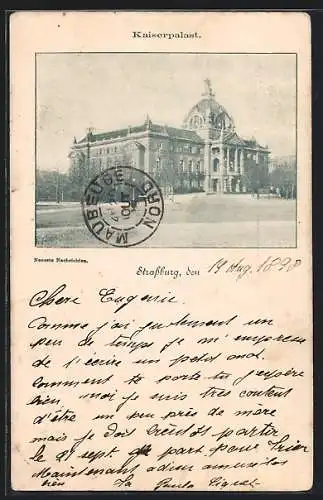 Kaiserpalast.
MAUBEUGE
NORD
Neueste Nachrichten.
Straßburg, den 19 Aug. 1898
Chère Eugenie.
Comme j'ai justement un
peu de temps je m'empresse
de t'écrire un petit mot.
Comment te porte tu j'espère
bien, moi je suis très content
d'être un peu près de mère
mais je dois bientôt partir
le 21 sept. part pour Trier
Maintenant adieu amuse toi
bien